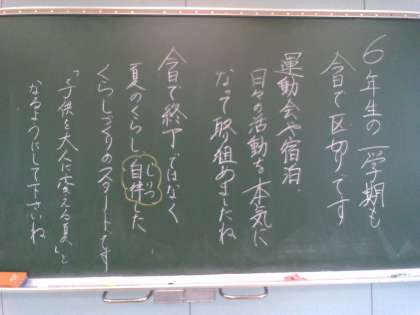 6年生の一学期も
今日で区切りです
運動会や宿泊、
日々の活動を本気に
なって取組めましたね
今日で終了ではなく
夏のくらし、自律した
じりつ
くらしづくりのスタートです
「子供を大人に変える夏」と
なるようにして下さいね